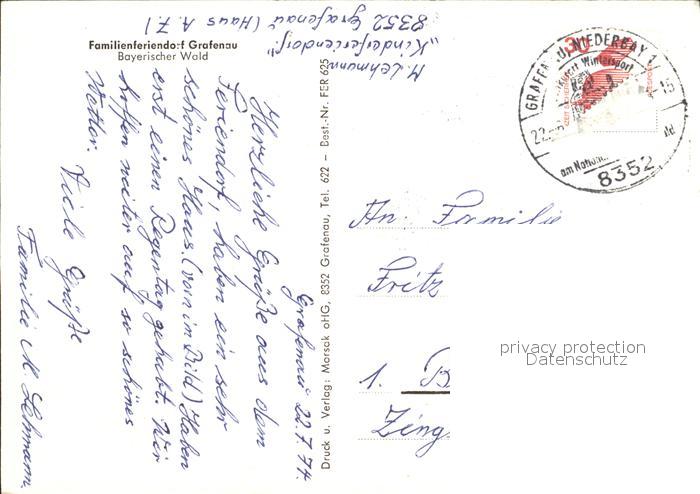 Familienferiendorf Grafenau
Bayerischer Wald
M. Lehmann
"Kinderferiendorf"
8352 Grafenau (Haus A. 7)
Grafenau 22.7.74.
Herzliche Grüße aus dem
Feriendorf, haben ein sehr
schönes Haus. (vorn im Bild) Haben
erst einen Regentag gehabt. Wir
hoffen weiter auf so schönes
Wetter.
Viele Grüße
Familie M Lehmann.
Druck u. Verlag: Morsak oHG, 8352 Grafenau, Tel. 622 — Best.-Nr. FER 625
30
GRAFENAU, NIEDERBAY 1
Wintersport
22.
15
am National
8352
An Familie
Fritz
1. B
Zing
privacy protection
Datenschutz